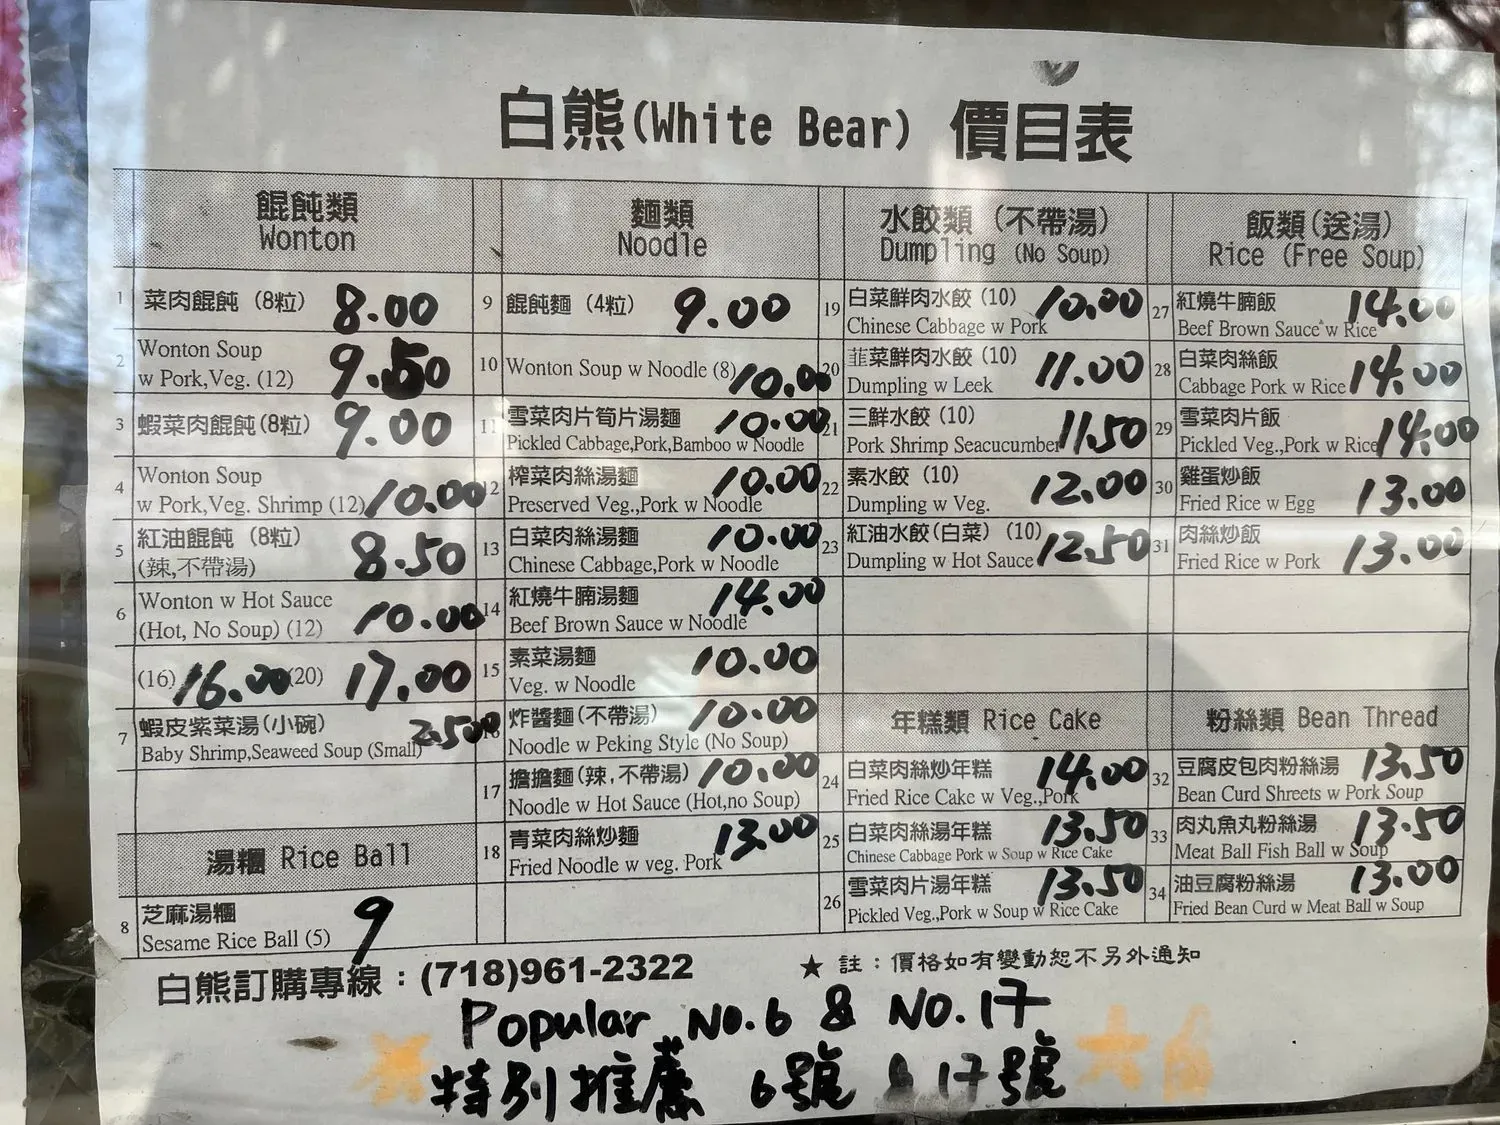 白熊(White Bear) 價目表
餛飩類
Wonton
1 菜肉餛飩 (8粒) 8.00
2 Wonton Soup
w Pork,Veg. (12) 9.50
3 蝦菜肉餛飩(8粒) 9.00
4 Wonton Soup
w Pork,Veg. Shrimp (12) 10.00
5 紅油餛飩 (8粒)
(辣,不帶湯) 8.50
6 Wonton w Hot Sauce
(Hot, No Soup) (12) 10.00
(16) 16.00 (20) 17.00
7 蝦皮紫菜湯(小碗)
Baby Shrimp,Seaweed Soup (Small) 2.50
湯糰 Rice Ball
8 芝麻湯糰
Sesame Rice Ball (5) 9
麵類
Noodle
9 餛飩麵 (4粒) 9.00
10 Wonton Soup w Noodle (8) 10.00
11 雪菜肉片筍片湯麵 10.00
Pickled Cabbage,Pork,Bamboo w Noodle
12 榨菜肉絲湯麵 10.00
Preserved Veg.,Pork w Noodle
13 白菜肉絲湯麵 10.00
Chinese Cabbage,Pork w Noodle
14 紅燒牛腩湯麵 14.00
Beef Brown Sauce w Noodle
15 素菜湯麵 10.00
Veg. w Noodle
16 炸醬麵(不帶湯) 10.00
Noodle w Peking Style (No Soup)
17 擔擔麵(辣,不帶湯) 10.00
Noodle w Hot Sauce (Hot,no Soup)
18 青菜肉絲炒麵 13.00
Fried Noodle w veg. Pork
水餃類 (不帶湯)
Dumpling (No Soup)
19 白菜鮮肉水餃 (10) 10.00
Chinese Cabbage w Pork
20 韮菜鮮肉水餃 (10) 11.00
Dumpling w Leek
21 三鮮水餃 (10) 11.50
Pork Shrimp Seacucumber
22 素水餃 (10) 12.00
Dumpling w Veg.
23 紅油水餃(白菜) (10) 12.50
Dumpling w Hot Sauce
年糕類 Rice Cake
24 白菜肉絲炒年糕 14.00
Fried Rice Cake w Veg.,Pork
25 白菜肉絲湯年糕 13.50
Chinese Cabbage Pork w Soup w Rice Cake
26 雪菜肉片湯年糕 13.50
Pickled Veg.,Pork w Soup w Rice Cake
飯類(送湯)
Rice (Free Soup)
27 紅燒牛腩飯 14.00
Beef Brown Sauce w Rice
28 白菜肉絲飯 14.00
Cabbage Pork w Rice
29 雪菜肉片飯 14.00
Pickled Veg.,Pork w Rice
30 雞蛋炒飯 13.00
Fried Rice w Egg
31 肉絲炒飯 13.00
Fried Rice w Pork
粉絲類 Bean Thread
32 豆腐皮包肉粉絲湯 13.50
Bean Curd Shreets w Pork Soup
33 肉丸魚丸粉絲湯 13.50
Meat Ball Fish Ball w Soup
34 油豆腐粉絲湯 13.00
Fried Bean Curd w Meat Ball w Soup
白熊訂購專線:(718)961-2322
★ 註:價格如有變動恕不另外通知
Popular NO.6 & NO.17
特別推薦 6號 & 17號